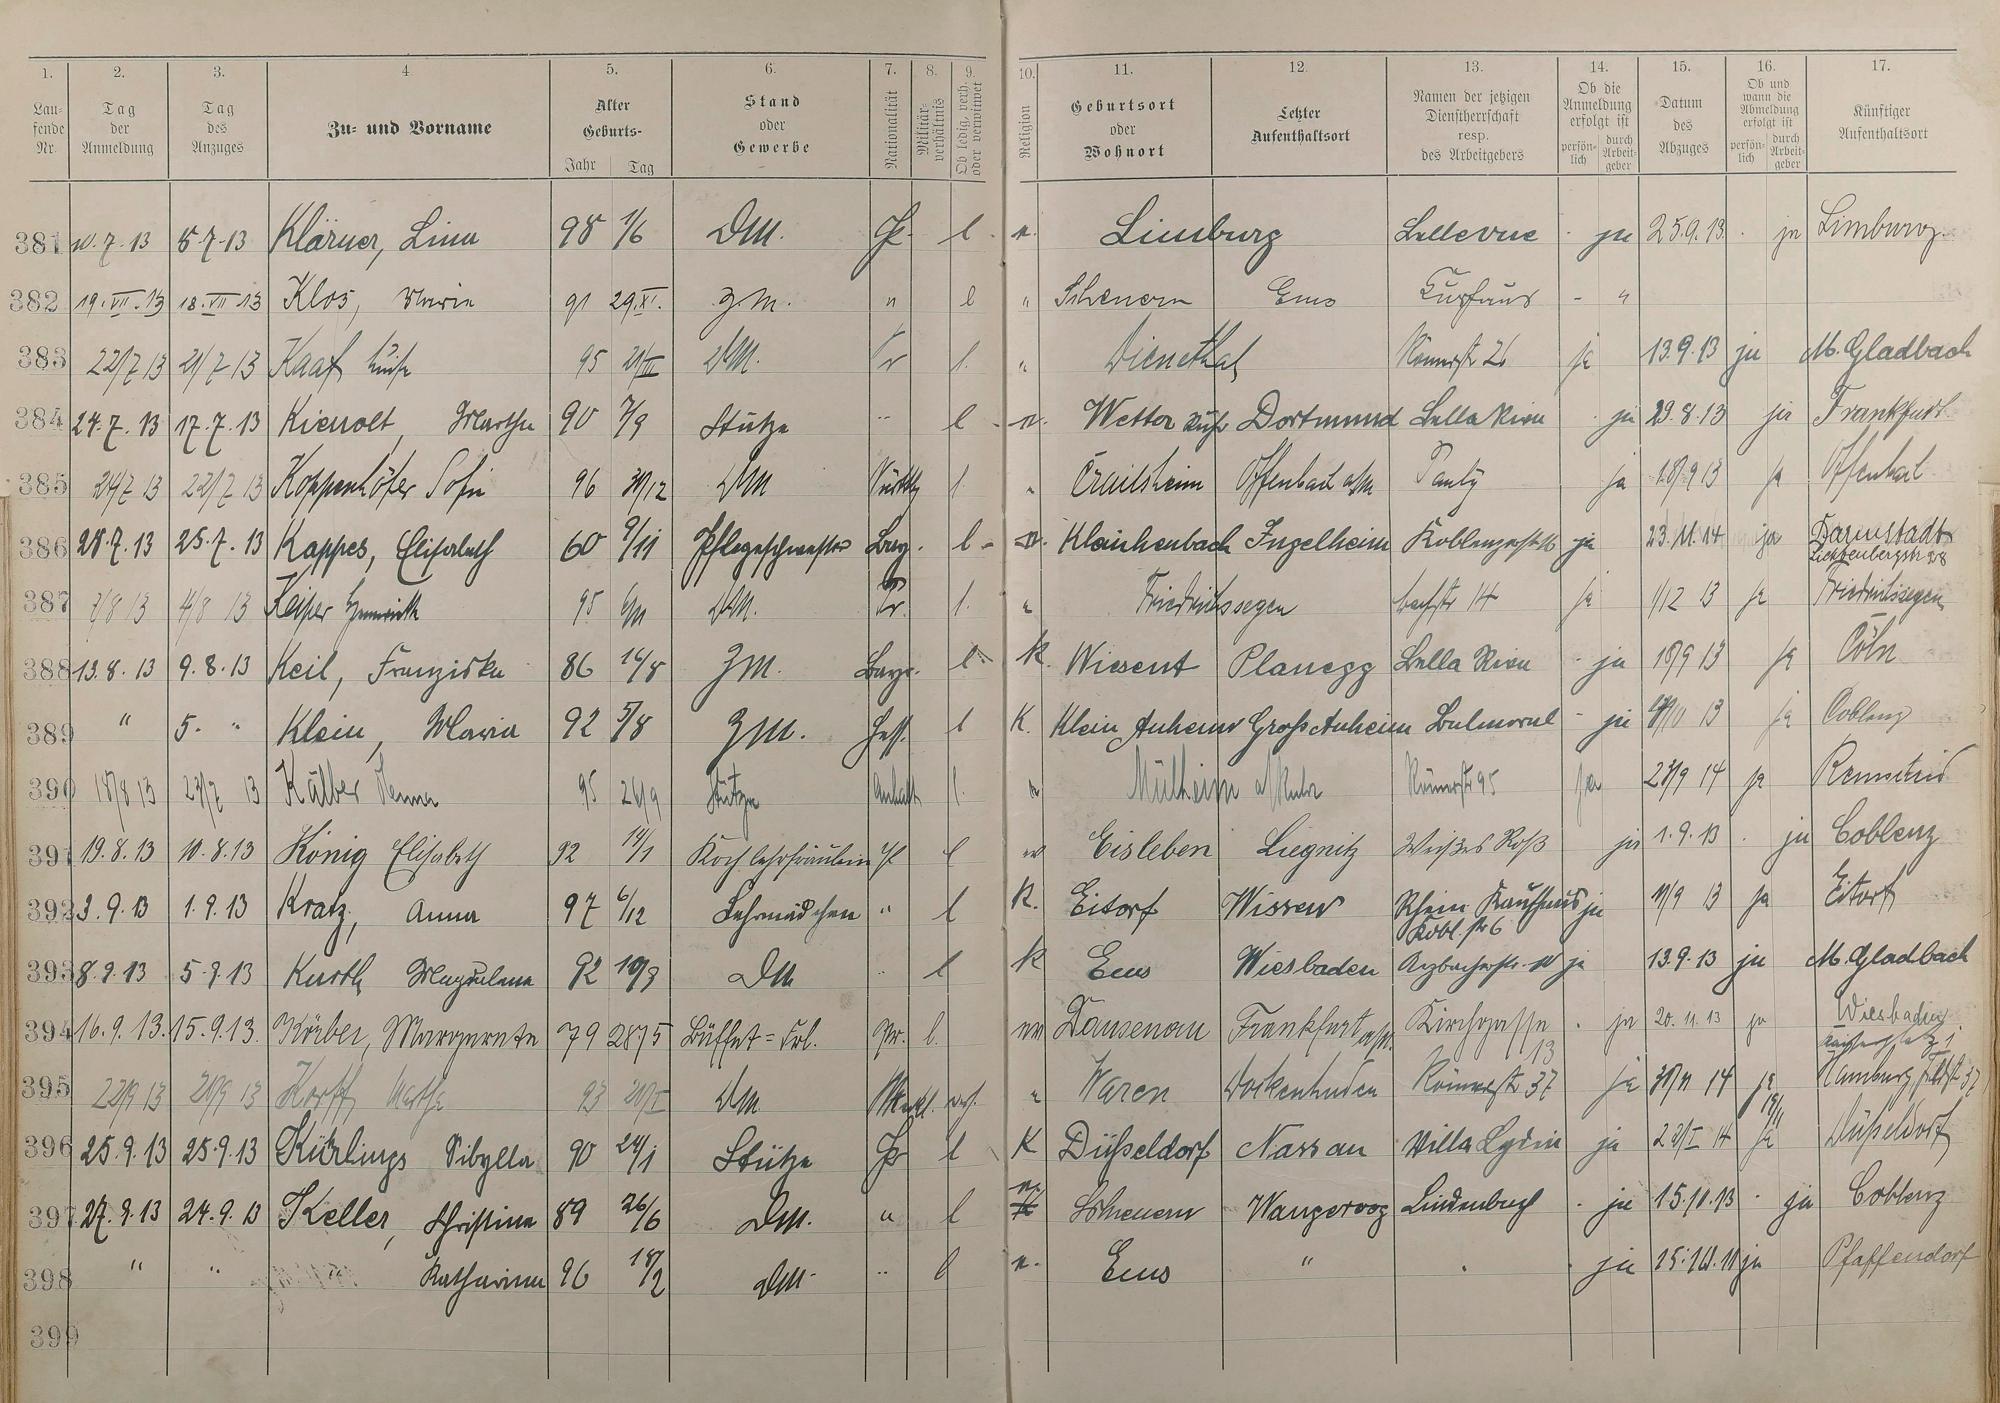 1. 2. 3. 4 5. 6. 7. 8. 9. 10. 11. 12. 13. 14. 15. 16. 17.
Lau-fende Nr. Tag der Anmeldung Tag des Anzuges Zu- und Vorname Alter Geburts- Jahr Tag Stand oder Gewerbe Nationalität Militär-verhältnis Ob ledig, verh. oder verwitwet Religion Geburtsort oder Wohnort Letzter Aufenthaltsort Namen der jetzigen Dienstherrschaft resp. des Arbeitgebers Ob die Anmeldung erfolgt ist persön-lich durch Arbeit-geber Datum des Abzuges Ob und wann die Abmeldung erfolgt ist persön-lich durch Arbeit-geber Künftiger Aufenthaltsort
381 10.7.13 8.7.13 Klärner, Lina 98 1/6 DM. Pr. l. Limburg Bellevue ja 25.9.13. ja Limburg
382 19.VII.13 18.VII.13 Klos, Maria 91 29.XI. Z.M. " l " Scheuern Ems Kurhaus - "
383 22/7 13 21/7 13 Kaaf Luise 95 21/III DM. Pr l. " Dienethal Römerstr 26 ja 13.9.13 ja M. Gladbach
384 24.7.13 17.7.13 Kienolt, Martha 90 7/9 Stütze " l Wetter Ruhr Dortmund Bella Riva ja 29.8.13 ja Frankfurt
385 24/7 13 22/7 13 Koppenhöfer Sofie 96 30/12 DM l. " Crailsheim Offenbach a/M Pauly ja 18/9 13 ja Offenbach
386 28.7.13 25.7.13 Kappes, Elisabeth 60 9/11 Pflegeschwester Bay. l Kleichenbach Ingelheim ja 23.11.14 ja Darmstadt
387 7/8 13 4/8 13 Keiper 95 6/11 DM. Pr. l. " Friedrichssegen Bachstr 14 ja 1/12 13 ja Friedrichssegen
388 13.8.13 9.8.13 Keil, Franziska 86 14/8 Z.M. Baye. l K. Wiesent Planegg Bella Riva - ja 18/9 13 ja Cöln
389 " 5. " Klein, Maria 92 5/8 Z.M. Hess. l K. Klein Auheim Groß Auheim Balmoral - ja 13 ja Coblenz
390 18/8 13 23/7 13 Kälber 95 26/9 Stütze Anhalt l. Mülheim a/Ruhr Römerstr 95 ja 23/9 14 ja
391 19.8.13 10.8.13 König Elisabeth 92 14/1 Kochlehrfräulein l Eisleben Liegnitz Weißes Roß ja 1.9.13 ja Coblenz
392 3.9.13 1.9.13 Kratz, Anna 97 6/12 Lehrmädchen " l K. Eitorf Wissen Rhein Kaufhaus ja 11/9 13 ja Eitorf
Kobl. str 6
393 8.9.13 5.9.13 Kurth Magdalena 92 DM " l K Ems Wiesbaden ja 13.9.13 ja M. Gladbach
394 16.9.13. 15.9.13. Körber, Margarete 79 28.5 Büffet=Frl. Pr. l. Dausenau Frankfurt a/M. Kirchgasse 13 ja 20.11.13 ja Wiesbaden
395 22/9 13 20/9 13 Korff 93 20/I DM " Waren Dockenhuden Römerstr 37 ja 14 ja Hamburg
396 25.9.13 25.9.13 Sibylla 90 24/1 Stütze Pr l K Düsseldorf Nassau Villa Lydia ja 23/I 14 ja Düsseldorf
397 27.9.13 24.9.13 Keller, Christine 89 26/6 DM. " l Scheuern Wangeroog Lindenbach ja 15.10.13 ja Coblenz
398 " " Katharina 96 18/2 DM. " l Ems " ja ja Pfaffendorf
399